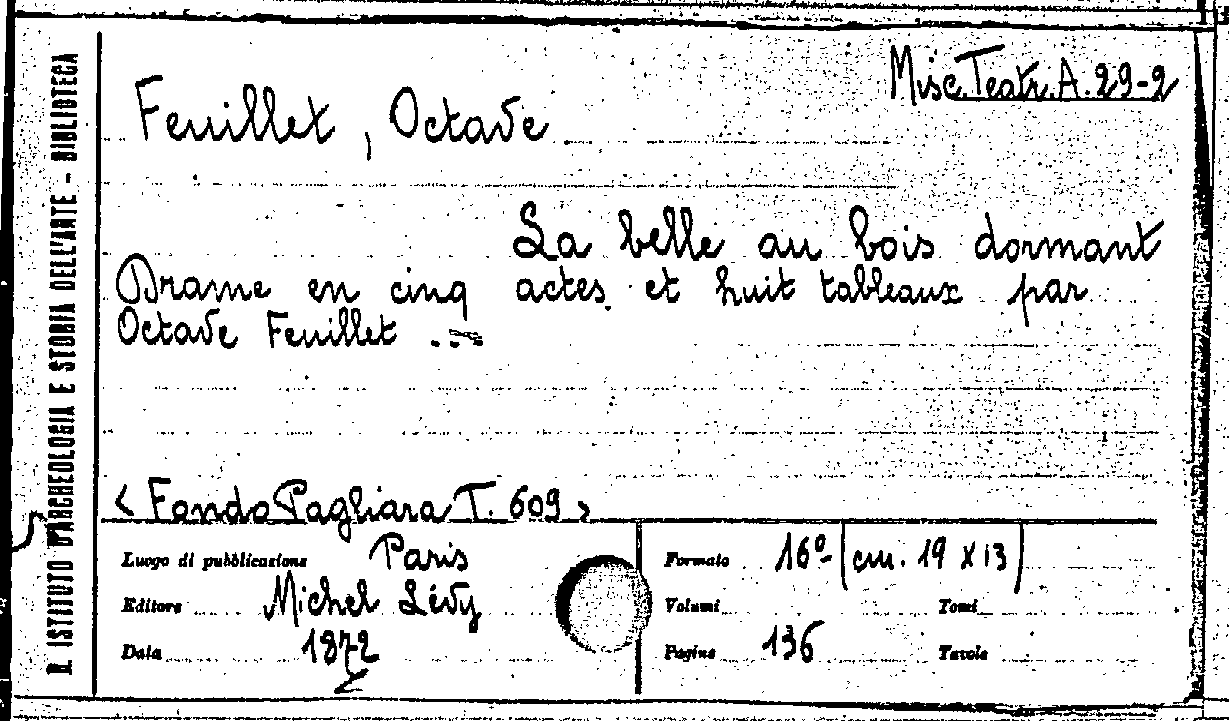 R. ISTITUTO D'ARCHEOLOGIA E STORIA DELL'ARTE - BIBLIOTECA
Misc. Teatr. A. 29-2
Feuillet, Octave
La belle au bois dormant
Drame en cinq actes et huit tableaux par
Octave Feuillet ..=
< Fondo Pagliara T. 609 >
Luogo di pubblicazione Paris
Editore Michel Lévy
Data 1872
Formato 16º (cm. 19 x 13)
Volumi Tomi
Pagine 136 Tavole